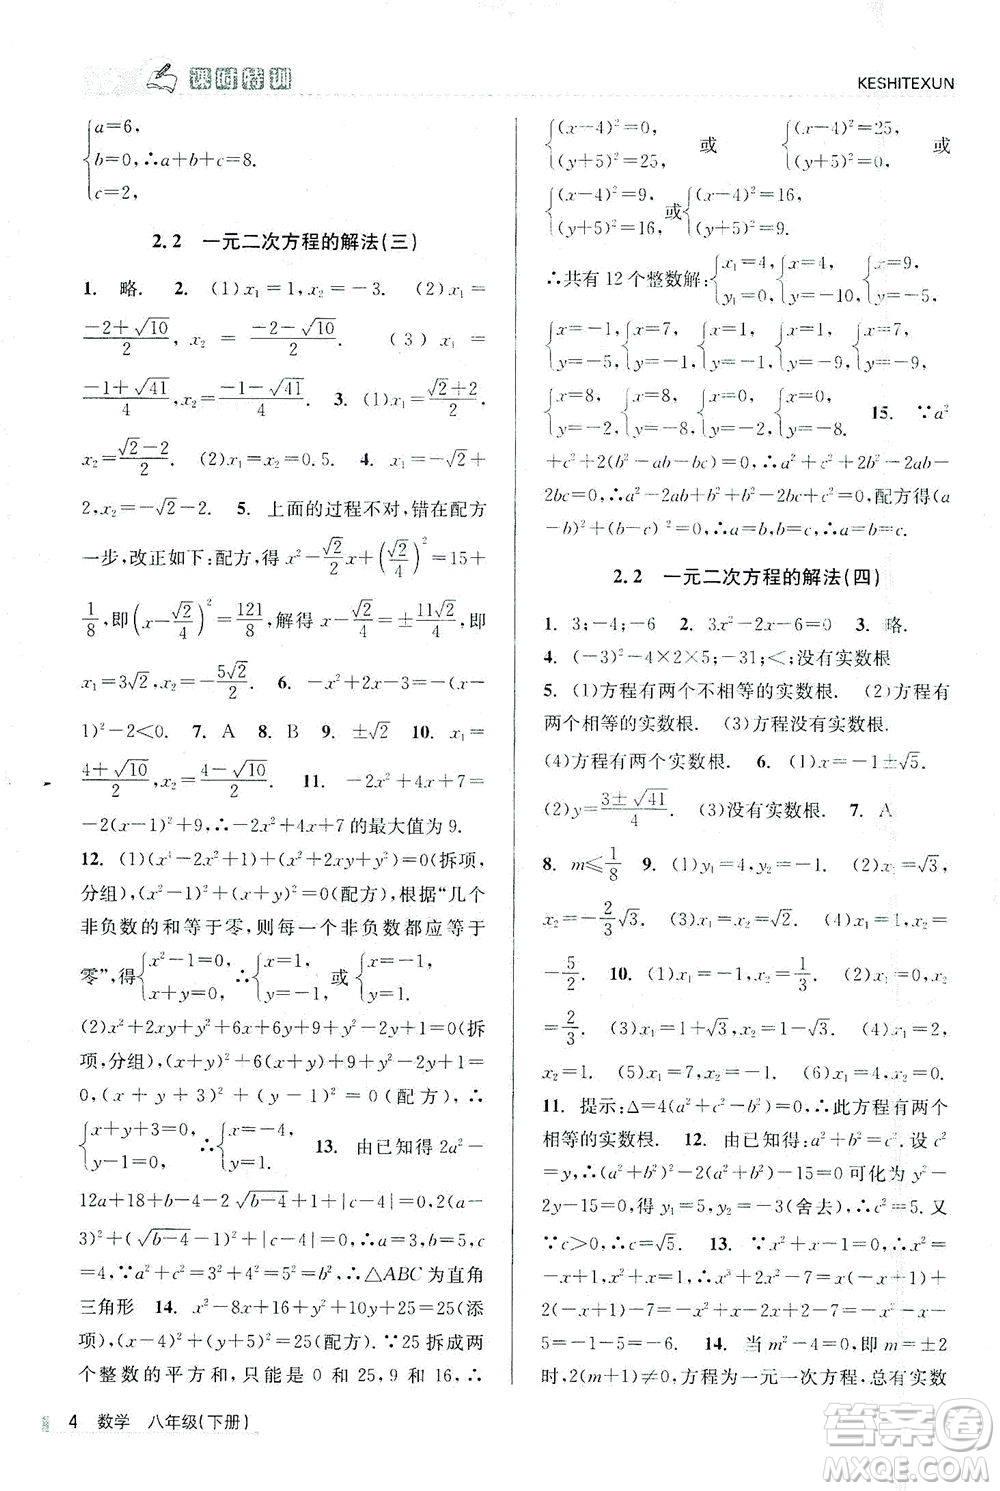 课时特训
KESHITEXUN
{a=6, b=0, c=2, ∴a+b+c=8.
2.2 一元二次方程的解法(三)
1. 略. 2. (1)x₁=1,x₂=-3. (2)x₁=
(-2+√10)/2, x₂=(-2-√10)/2. (3)x₁=
(-1+√41)/4,x₂=(-1-√41)/4. 3. (1)x₁=(√2+2)/2.
x₂=(√2-2)/2. (2)x₁=x₂=0.5. 4. x₁=-√2+
2,x₂=-√2-2. 5. 上面的过程不对,错在配方
一步,改正如下:配方,得x²-(√2/2)x+(√2/4)²=15+
1/8,即(x-√2/4)²=121/8,解得x-√2/4=±11√2/4,
x₁=3√2,x₂=-5√2/2. 6. -x²+2x-3=-(x-
1)²-2<0. 7. A 8. B 9. ±√2 10. x₁=
(4+√10)/2,x₂=(4-√10)/2. 11. -2x²+4x+7=
-2(x-1)²+9,∴-2x²+4x+7的最大值为9.
12. (1)(x⁴-2x²+1)+(x²+2xy+y²)=0(拆项,
分组),(x²-1)²+(x+y)²=0(配方),根据“几个
非负数的和等于零,则每一个非负数都应等于
零”,得{x²-1=0, x+y=0, ∴{x=1, y=-1, 或{x=-1, y=1.
(2)x²+2xy+y²+6x+6y+9+y²-2y+1=0(拆
项,分组),(x+y)²+6(x+y)+9+(y-1)²=
0,(x+y+3)²+(y-1)²=0(配方),∴
{x+y+3=0, y-1=0, ∴{x=-4, y=1. 13. 由已知得2a²-
12a+18+b-4-2√(b-4)+1+|c-4|=0,2(a-
3)²+(√(b-4)-1)²+|c-4|=0,∴a=3,b=5,c=
4,∵a²+c²=b²,∴△ABC为直角
三角形 14. x²-8x+16+y²+10y+25=25(添
项),(x-4)²+(y+5)²=25(配方).∵25拆成两
个整数的平方和,只能是0和25,9和16,∴
{(x-4)²=0, (y+5)²=25, 或{(x-4)²=25, (y+5)²=0, 或
{(x-4)²=9, (y+5)²=16, 或{(x-4)²=16, (y+5)²=9.
∴共有12个整数解:{x₁=4, y₁=0, {x=4, y=-10, {x=9, y=-5,
{x=-1, y=-5, {x=7, y=-1, {x=1, y=-1, {x=7, y=-9, {x=1, y=-9,
{x=8, y=-2, {x=8, y=-8, {x=0, y=-2, {x=0, y=-8. 15. ∵a²
+c²+2(b²-ab-bc)=0,∴a²+c²+2b²-2ab-
2bc=0,∴a²-2ab+b²+b²-2bc+c²=0,配方得(a
-b)²+(b-c)²=0,∴a=b,b=c,∴a=b=c.
2.2 一元二次方程的解法(四)
1. 3;-4;-6 2. 3x²-2x-6=0 3. 略.
4. (-3)²-4×2×5;-31;<;没有实数根
5. (1)方程有两个不相等的实数根. (2)方程有
两个相等的实数根. (3)方程没有实数根.
(4)方程有两个不相等的实数根. 6. (1)x=-1±√5.
(2)y=(3±√41)/4. (3)没有实数根. 7. A
8. m≤1/8 9. (1)y₁=4,y₂=-1. (2)x₁=√3,
x₂=-(2/3)√3. (3)x₁=x₂=√2. (4)x₁=1,x₂=
-5/2. 10. (1)x₁=-1,x₂=1/3. (2)x₁=0,x₂
=2/3. (3)x₁=1+√3,x₂=1-√3. (4)x₁=2,
x₂=1. (5)x₁=7,x₂=-1. (6)x₁=4,x₂=0.
11. 提示:Δ=4(a²+c²-b²)=0,∴此方程有两个
相等的实数根. 12. 由已知得:a²+b²=c². 设c²
=y,∴(a²+b²)²-2(a²+b²)-15=0可化为y²-
2y-15=0,得y₁=5,y₂=-3(舍去),∴c²=5. 又
∵c>0,∴c=√5. 13. ∵x²+x-1=0,∴x²
=-x+1,∴-x³-2x²+2x-7=-x(-x+1)-
2(-x+1)+2x-7=-x+x²+2x-2+2x-7=
5=-1-5=-6. 14. 当m²-4=0,即m=±2
时,2(m+1)≠0,方程为一元一次方程,总有实数
4 数学 八年级(下册)
答案圈
MXQE.COM